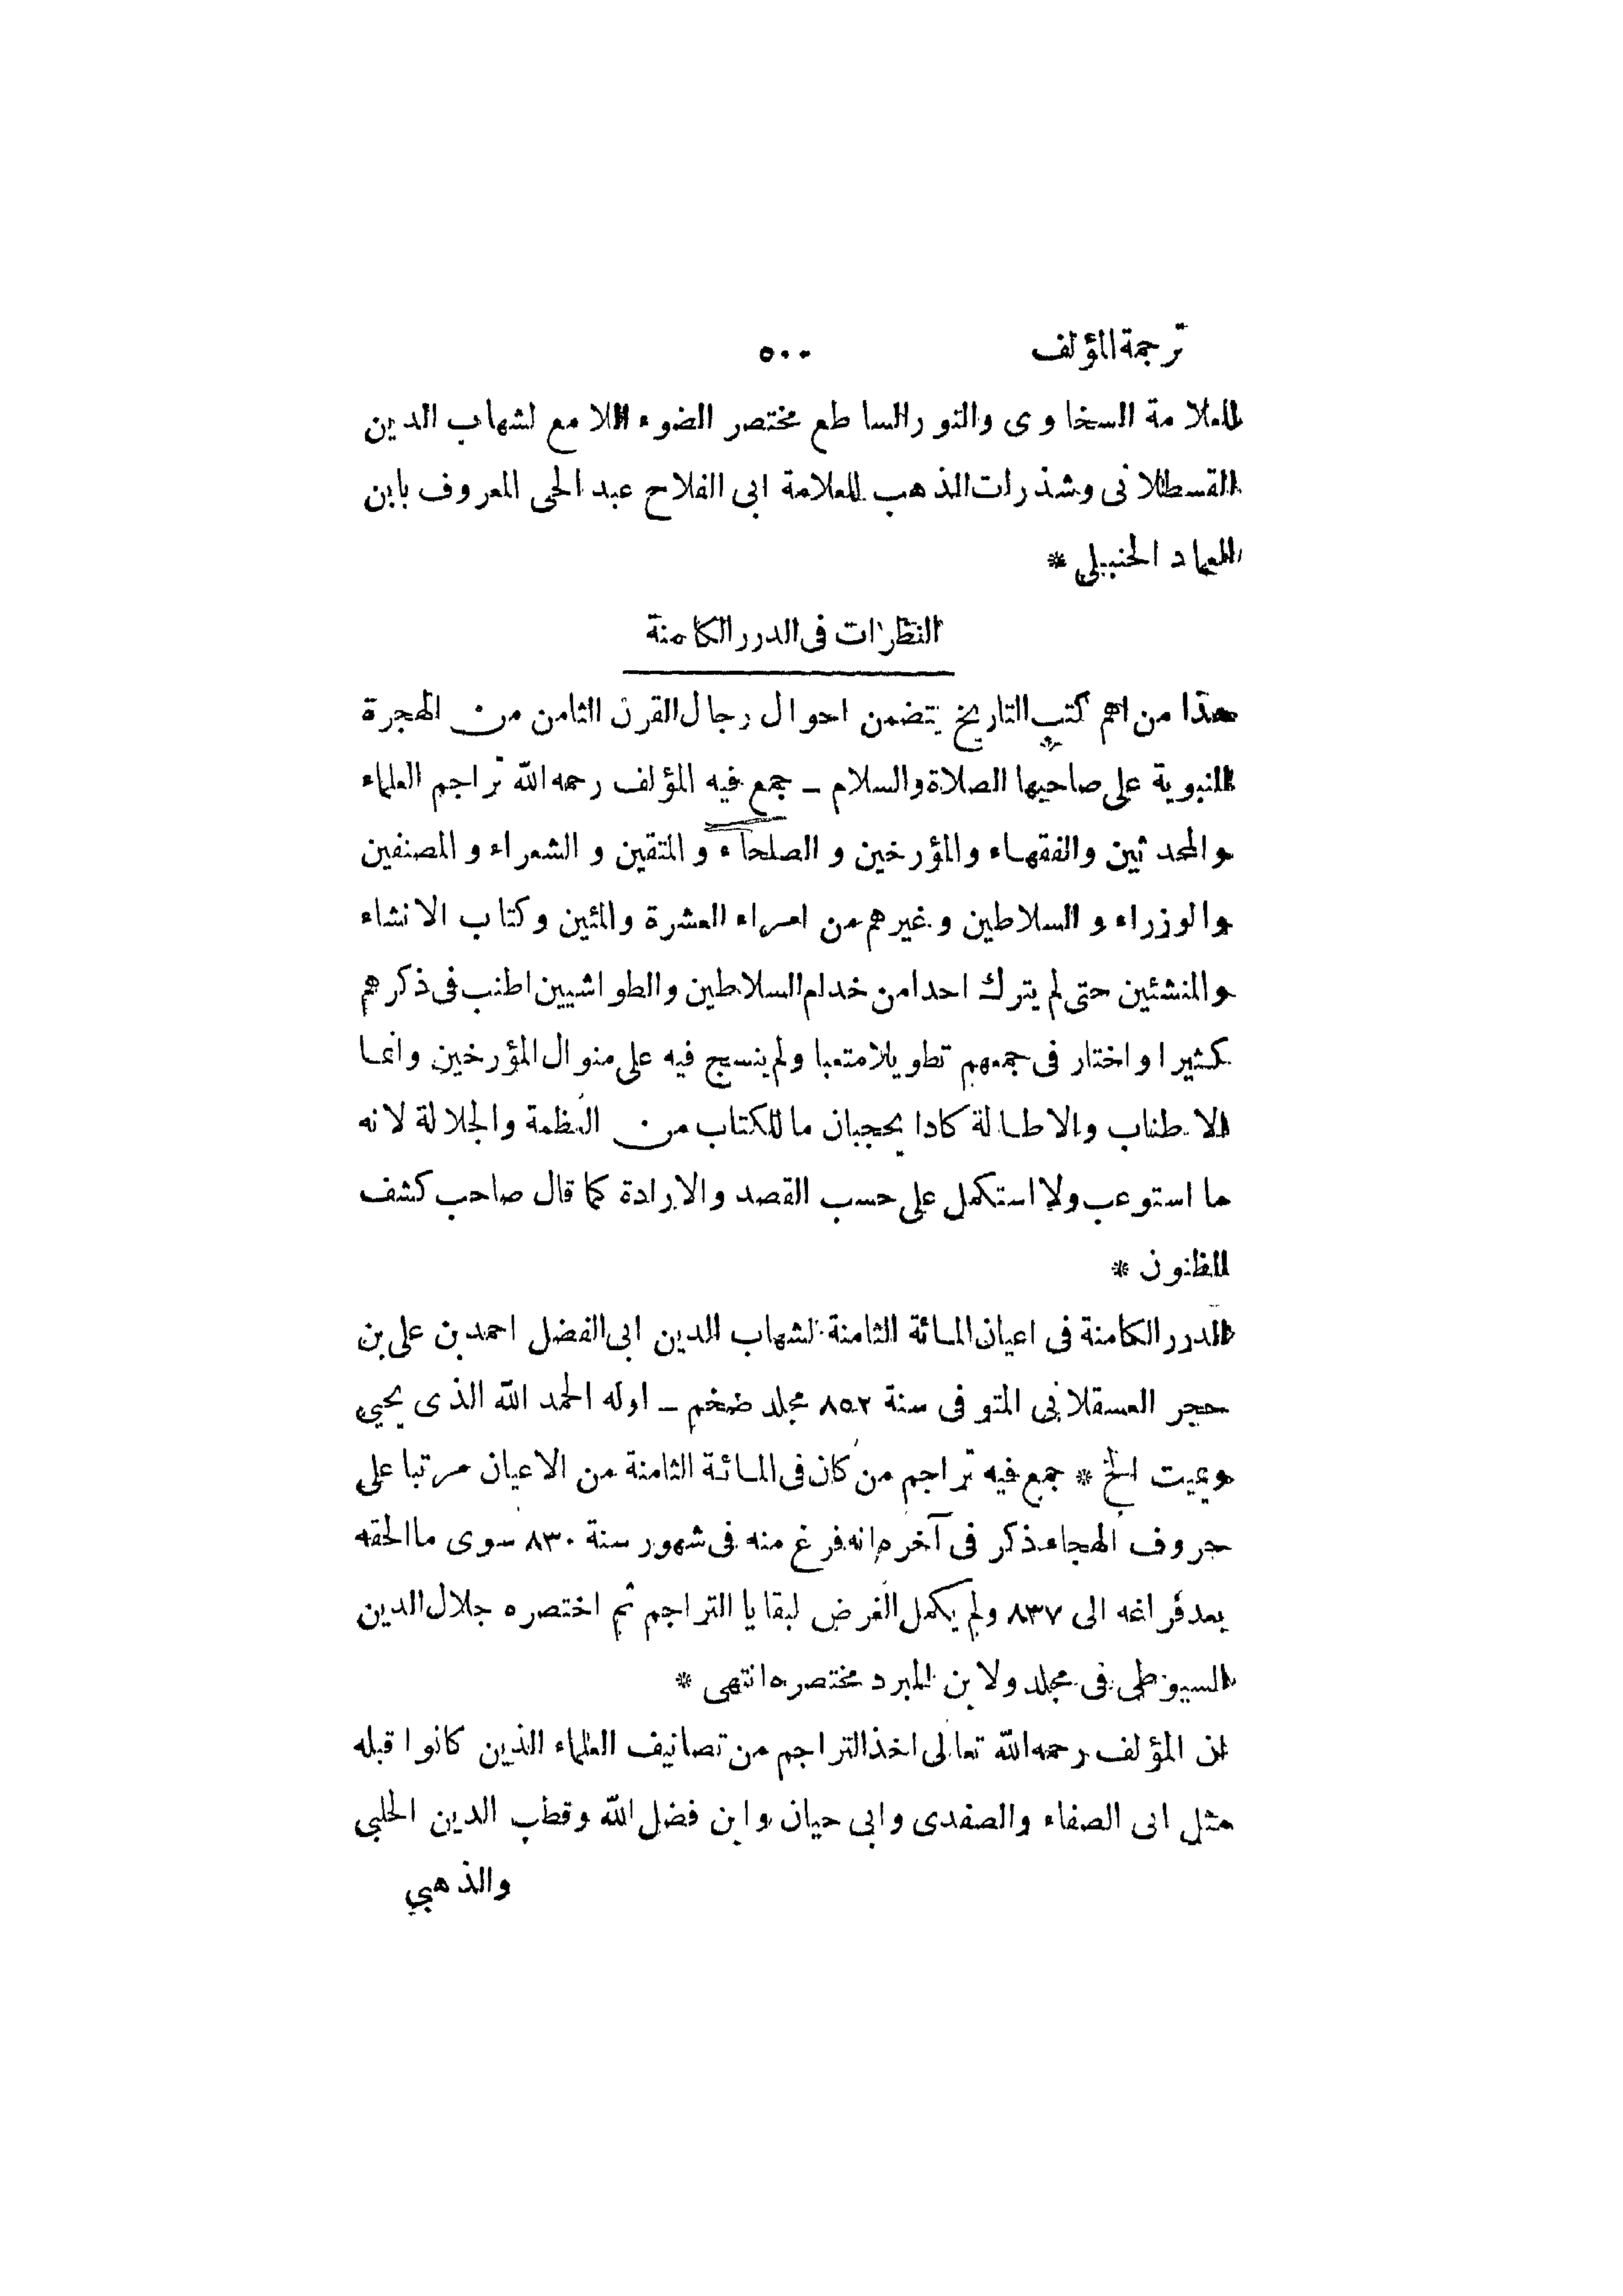 ترجمة المؤلف ٥٠٠
للعلامة السخاوى والنور الساطع مختصر الضوء اللامع لشهاب الدين
القسطلانى وشذرات الذهب للعلامة ابى الفلاح عبد الحى المعروف بابن
العماد الحنبيلى *
النظرات فى الدرر الكامنة
هذا من اهم كتب التاريخ يتضمن احوال رجال القرن الثامن من الهجرة
النبوية على صاحبها الصلاة والسلام ـ جمع فيه المؤلف رحمه الله تراجم العلماء
والمحدثين والفقهاء والمؤرخين والصلحاء والمتقين والشعراء والمصنفين
والوزراء والسلاطين وغيرهم من امراء العشرة والمئين وكتاب الانشاء
والمنشئين حتى لم يترك احدا من خدام السلاطين والطواشيين اطنب فى ذكرهم
كثيرا واختار فى جمعهم تطويلا متعبا ولم ينسج فيه على منوال المؤرخين وانما
الاطناب والاطالة كادا يحجبان ما للكتاب من العظمة والجلالة لانه
ما استوعب ولا استكمل على حسب القصد والارادة كما قال صاحب كشف
الظنون *
الدرر الكامنة فى اعيان المائة الثامنة لشهاب الدين ابى الفضل احمد بن على بن
حجر العسقلانى المتوفى سنة ٨٥٢ مجلد ضخم ـ اوله الحمد الله الذى يحيى
ويميت الخ * جمع فيه تراجم من كان فى المائة الثامنة من الاعيان مرتبا على
حروف الهجاء ذكر فى آخره انه فرغ منه فى شهور سنة ٨٣٠ سوى ما الحقه
بعد فراغه الى ٨٣٧ ولم يكمل الغرض لبقايا التراجم ثم اختصره جلال الدين
السيوطى فى مجلد ولابن المبرد مختصره انتهى *
ان المؤلف رحمه الله تعالى اخذ التراجم من تصانيف العلماء الذين كانوا قبله
مثل ابى الصفاء والصفدى وابى حيان وابن فضل الله وقطب الدين الحلبى
والذهبي